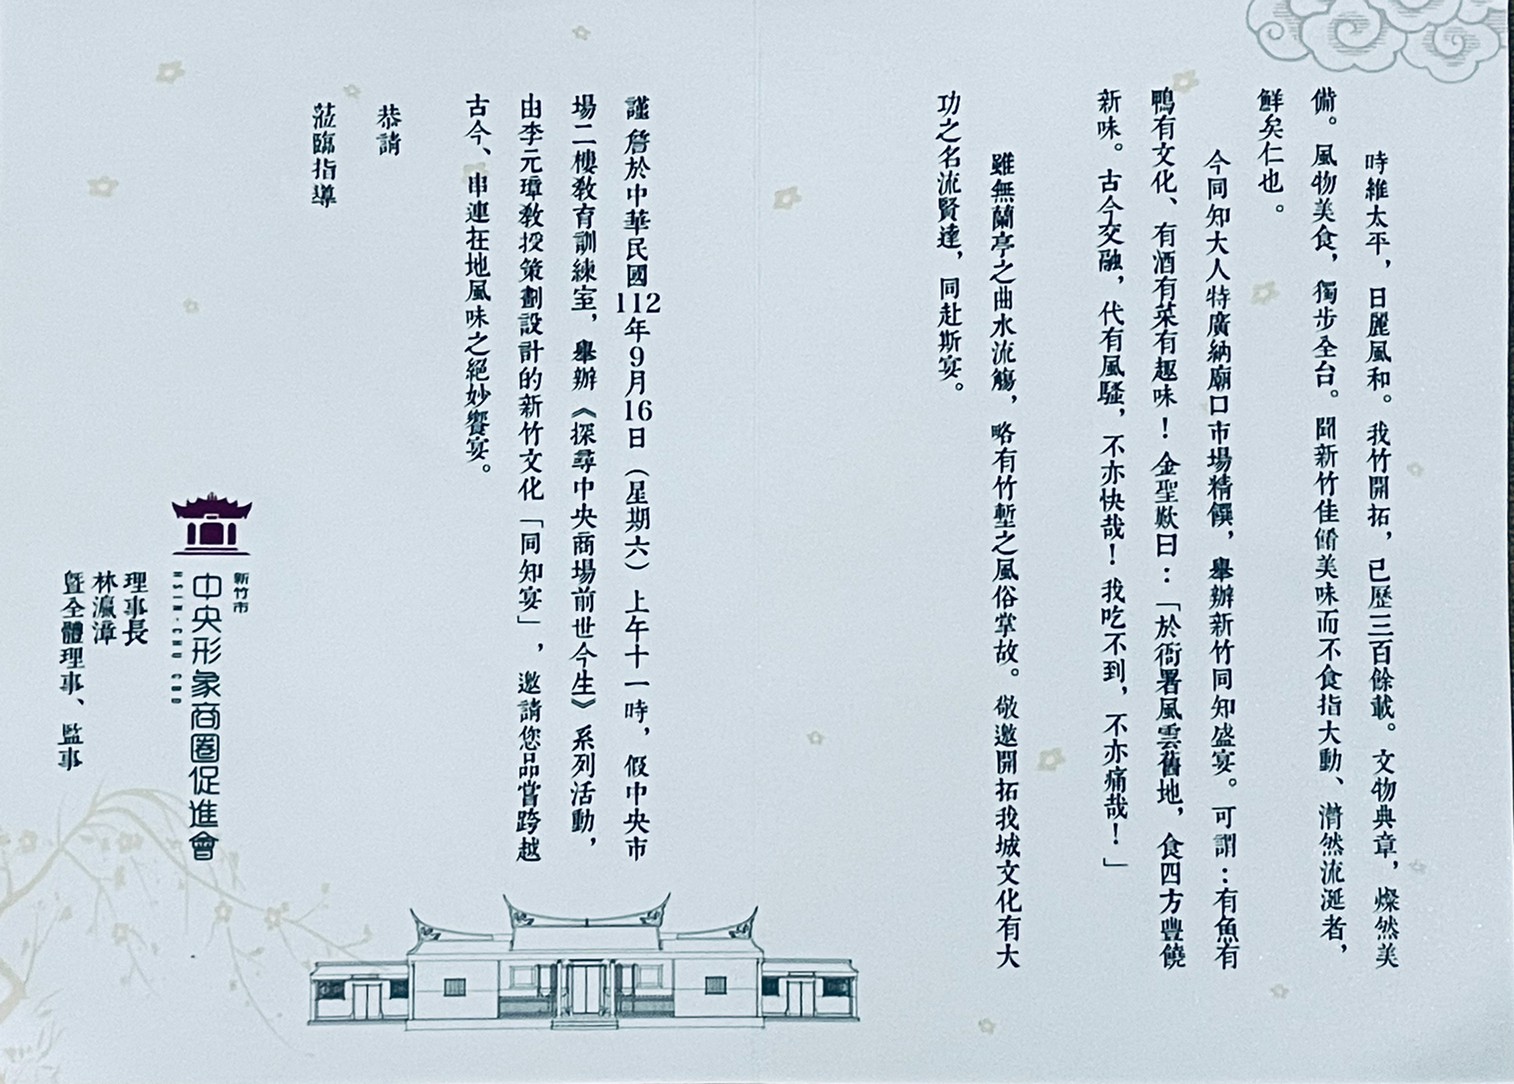 時維太平，日麗風和。我竹開拓，已歷三百餘載。文物典章，燦然美
備。風物美食，獨步全台。聞新竹佳餚美味而不食指大動、潸然流涎者，
鮮矣仁也。
今同知大人特廣納廟口市場精饌，舉辦新竹同知盛宴。可謂：有魚有
鴨有文化、有酒有菜有趣味！金聖歎曰：「於衙署風雲舊地，食四方豐饒
新味。古今交融，代有風騷，不亦快哉！我吃不到，不亦痛哉！」
雖無蘭亭之曲水流觴，略有竹塹之風俗掌故。敬邀開拓我城文化有大
功之名流賢達，同赴斯宴。
謹詹於中華民國112年9月16日（星期六）上午十一時，假中央市
場二樓教育訓練室，舉辦《探尋中央商場前世今生》系列活動，
由李元璋教授策劃設計的新竹文化「同知宴」，邀請您品嘗跨越
古今、串連在地風味之絕妙饗宴。
恭請
蒞臨指導
新竹市
中央形象商圈促進會
HSIN-CHU CBD
理事長
林瀛漳
暨全體理事、監事